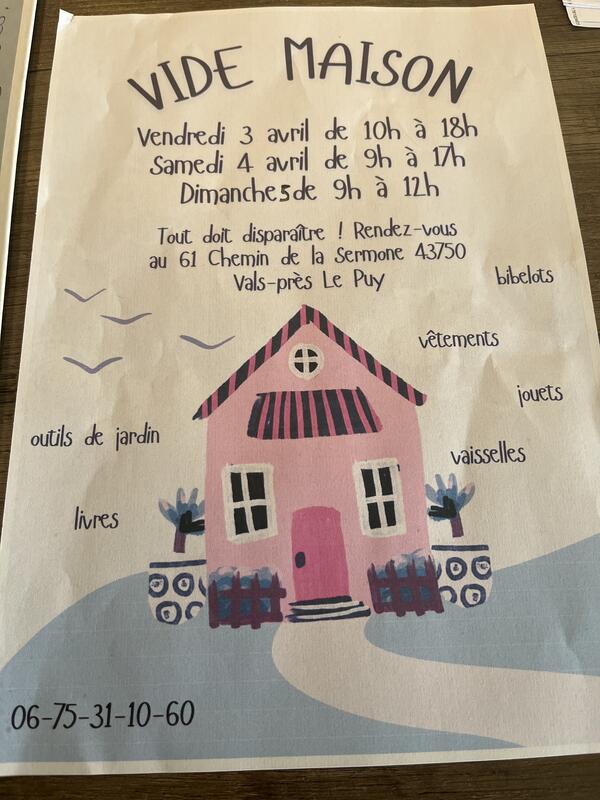 VIDE MAISON
Vendredi 3 avril de 10h à 18h
Samedi 4 avril de 9h à 17h
Dimanche 5 de 9h à 12h
Tout doit disparaître ! Rendez-vous
au 61 Chemin de la Sermone 43750
Vals-près Le Puy
bibelots
vêtements
jouets
outils de jardin
vaisselles
livres
06-75-31-10-60